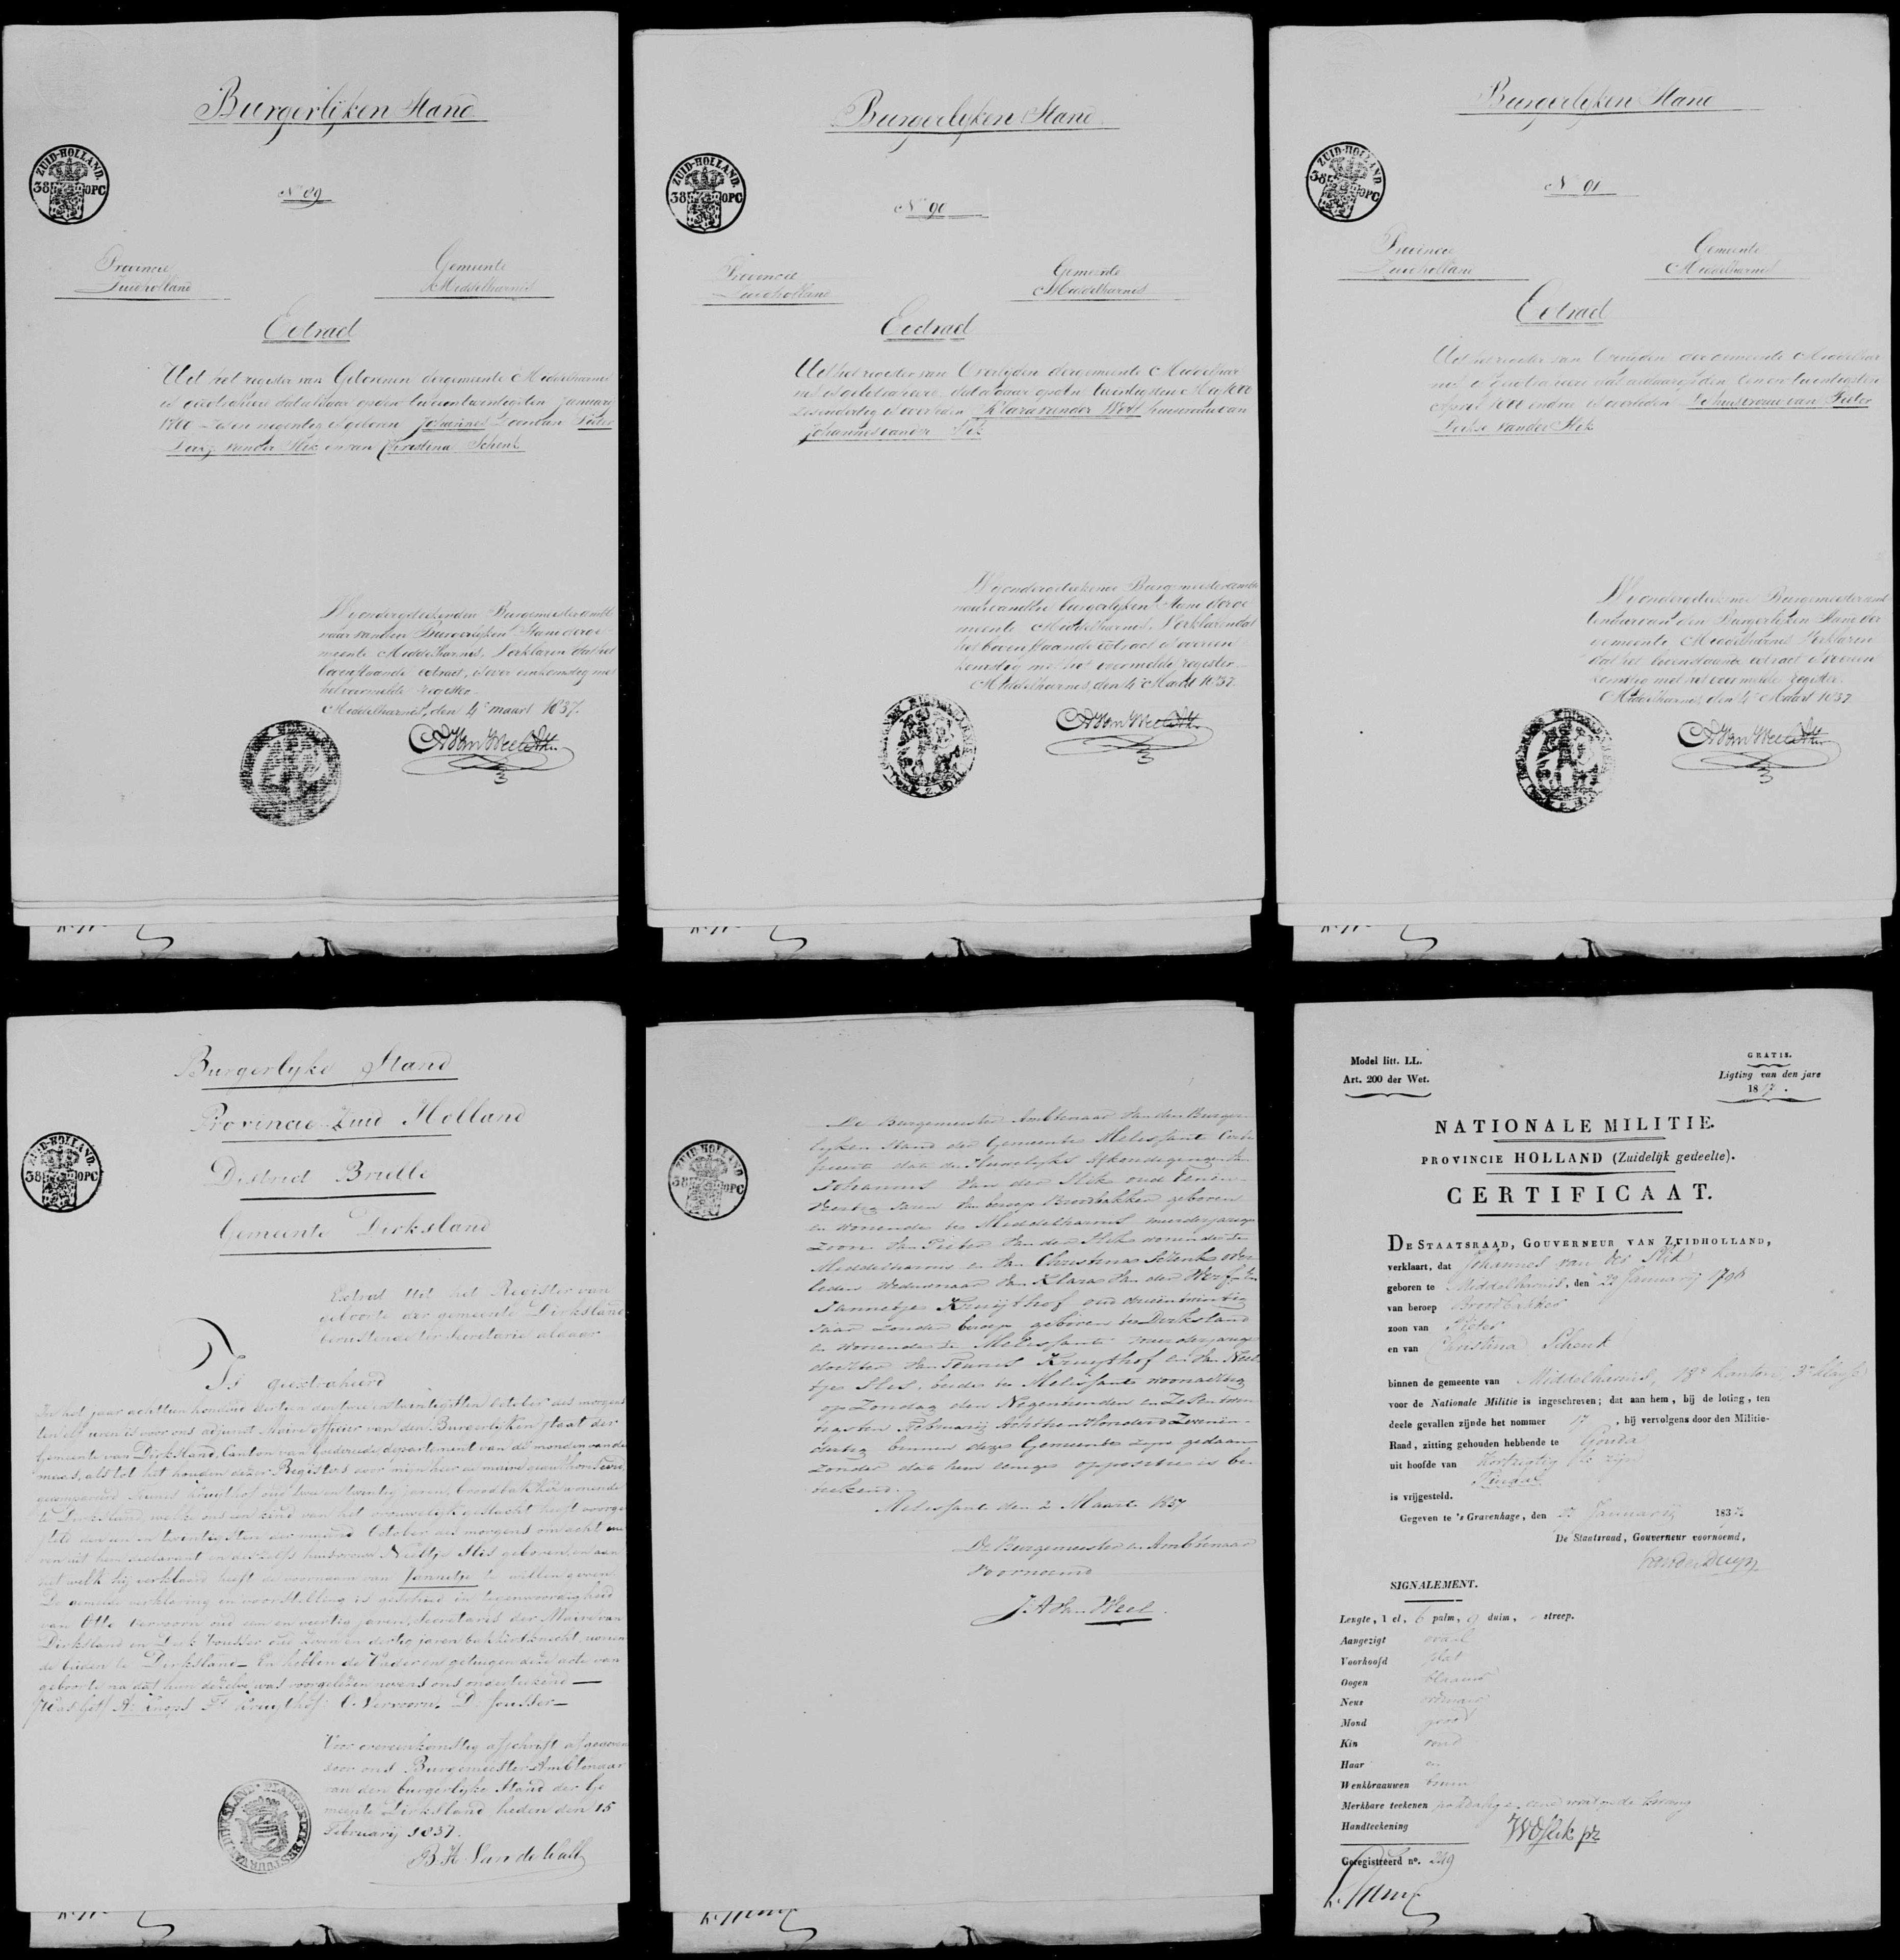 Burgerlijken Stand
ZUID-HOLLAND.
38 OPC
No 89
Provincie
Zuidholland
Gemeente
Middelharnis
Extract
Uit het register van Geborenen der gemeente Middelharnis
is geextraheerd dat aldaar op den twee en twintigsten January
zes en negentig is geboren Johannes Zoon van Pieter
van der Slik en van Christina Schenk
Wy ondergeteekenden Burgemeester ambte
naar van den Burgerlijken Stand der ge
meente Middelharnis, Verklaren dat het
bovenstaande extract, is over eenkomstig met
het voormelde register
Middelharnis, den 4e maart 1837.
Burgerlyken Stand
ZUID-HOLLAND.
38 OPC
No 90
Provincie
Zuidholland
Gemeente
Middelharnis
Extract
Uit het register van Overlyden der gemeente Middelhar
nis is geextraheerd, dat aldaar op den twentigsten
zesendertig is overleden Klara van der Werf huisvrouw van
Johannes van der Slik
Wy ondergeteekende Burgemeester ambte
naar van den burgerlyken Stand der ge
meente Middelharnis, Verklaren dat
het bovenstaande extract is overeen
komstig met het voormelde register
Middelharnis, den 4e Maart 1837.
Burgerlyken Stand
ZUID-HOLLAND
38 OPC
N 91
Provincie
Zuidholland
Gemeente
Middelharnis
Extract
Uit het register van der gemeente Middelhar
nis is geextraheerd dat aldaar op den een en twintigsten
April is overleden De huisvrouw van Pieter
van der Slik
Wy ondergeteekende Burgemeester ambt
tenaar van den Burgerlyken Stand der
gemeente Middelharnis Verklaren
dat het bovenstaande extract is overeen
komstig met het voormelde register.
Middelharnis den 4e Maart 1837
Burgerlyke Stand
Provincie Zuid Holland
ZUID-HOLLAND.
38 OPC
District Brielle
Gemeente Dirksland
Extract Uit het Register van
geboorte der gemeente Dirksland
berustende ter Secretarie aldaar
Is geextraheerd
In het jaar achttien honderd dertien den twee en twintigsten October des morgens
ten elf uren is voor ons adjunct Maire officier van den Burgerlyken staat der
Gemeente van Dirksland, Canton van Goedereede departement van de monden van de
maas, als tot het houden dezer Registers door mijn heer de maire
gecompareerd Teunis Kruythof oud twee en twintig jaren, broodbakker wonende
te Dirksland, welke ons een kind van het vrouwelyk geslacht heeft voorge
steld den een en twintigsten der maand October des morgens om acht u
ren uit hem declarant en deszelfs huisvrouw Neeltje Slis geboren, en aan
het welk hij verklaard heeft de voornaam van Jannetje te willen geven
De gemelde verklaring en voorstelling is geschied in tegenwoordigheid
van Otto Vervoorn oud een en veertig jaren, Secretaris der Mairie van
Dirksland en Dirk oud dertig jaren bakkersknecht, wonen
de beiden te Dirksland – En hebben de Vader en getuigen deze acte van
geboorte na dat hun dezelve was voorgelezen nevens ons onderteekend —
Kruythof. O. Vervoorn. D.
Voor overeenkomstig afschrift afgegeven
door ons Burgemeester Ambtenaar
van den burgerlyke Stand der Ge
meente Dirksland, heden den 15
February 1837.
B. A. Van de Wall
De Burgemeester Ambtenaar van den Burger
lyken Stand der Gemeente Melissant Certi
ficeert dat de Huwelijks Afkondigingen van
Johannis Van der Slik oud Eenen
Veertig Jaren van beroep Broodbakker geboren
en wonende te Middelharnis meerderjarige
zoon van Pieter Van der Slik wonende te
Middelharnis en van Christina Schenk over
leden Weduwnaar van Klara van der Werf En
Jannetje Kruijthof oud drieentwintig
Jaar zonder beroep geboren te Dirksland
en wonende te Melissant meerderjarige
dochter van Teunis Kruijthof en van Neel
tje Slis, beide te Melissant woonachtig
op Zondag den Negentienden en Zesentwin
tigsten February Achttien Honderd Zevenen
dertig binnen deze Gemeente zyn gedaan
zonder dat hem eenige oppositie is be
tekend.
Melissant den 2 Maart 1837
De Burgemeester en Ambtenaar
Voornoemd
J. A Van Weel
ZUID-HOLLAND
38 OPC
Model litt. LL.
Art. 200 der Wet.
GRATIS.
Ligting van den jare
18
NATIONALE MILITIE.
PROVINCIE HOLLAND (Zuidelijk gedeelte).
CERTIFICAAT.
DE STAATSRAAD, GOUVERNEUR VAN ZUIDHOLLAND,
verklaart, dat Johannes van der Slik
geboren te Middelharnis, den 22 Januarij 1796
van beroep Broodbakker
zoon van Pieter
en van Christina Schenk
binnen de gemeente van Middelharnis, 18e kanton, 3e klasse
voor de Nationale Militie is ingeschreven; dat aan hem, bij de loting, ten
deele gevallen zijnde het nommer 17, hij vervolgens door den Militie-
Raad, zitting gehouden hebbende te Gouda
uit hoofde van
is vrijgesteld.
Gegeven te 's Gravenhage, den 27 Januarij 183
De Staatsraad, Gouverneur voornoemd,
SIGNALEMENT.
Lengte, 1 el, 6 palm, 9 duim, - streep.
Aangezigt ovaal
Voorhoofd plat
Oogen blaauw
Neus ordinair
Mond groot
Kin rond
Haar en
Wenkbraauwen bruin
Merkbare teekenen
Handteekening
Geregistreerd no. 249